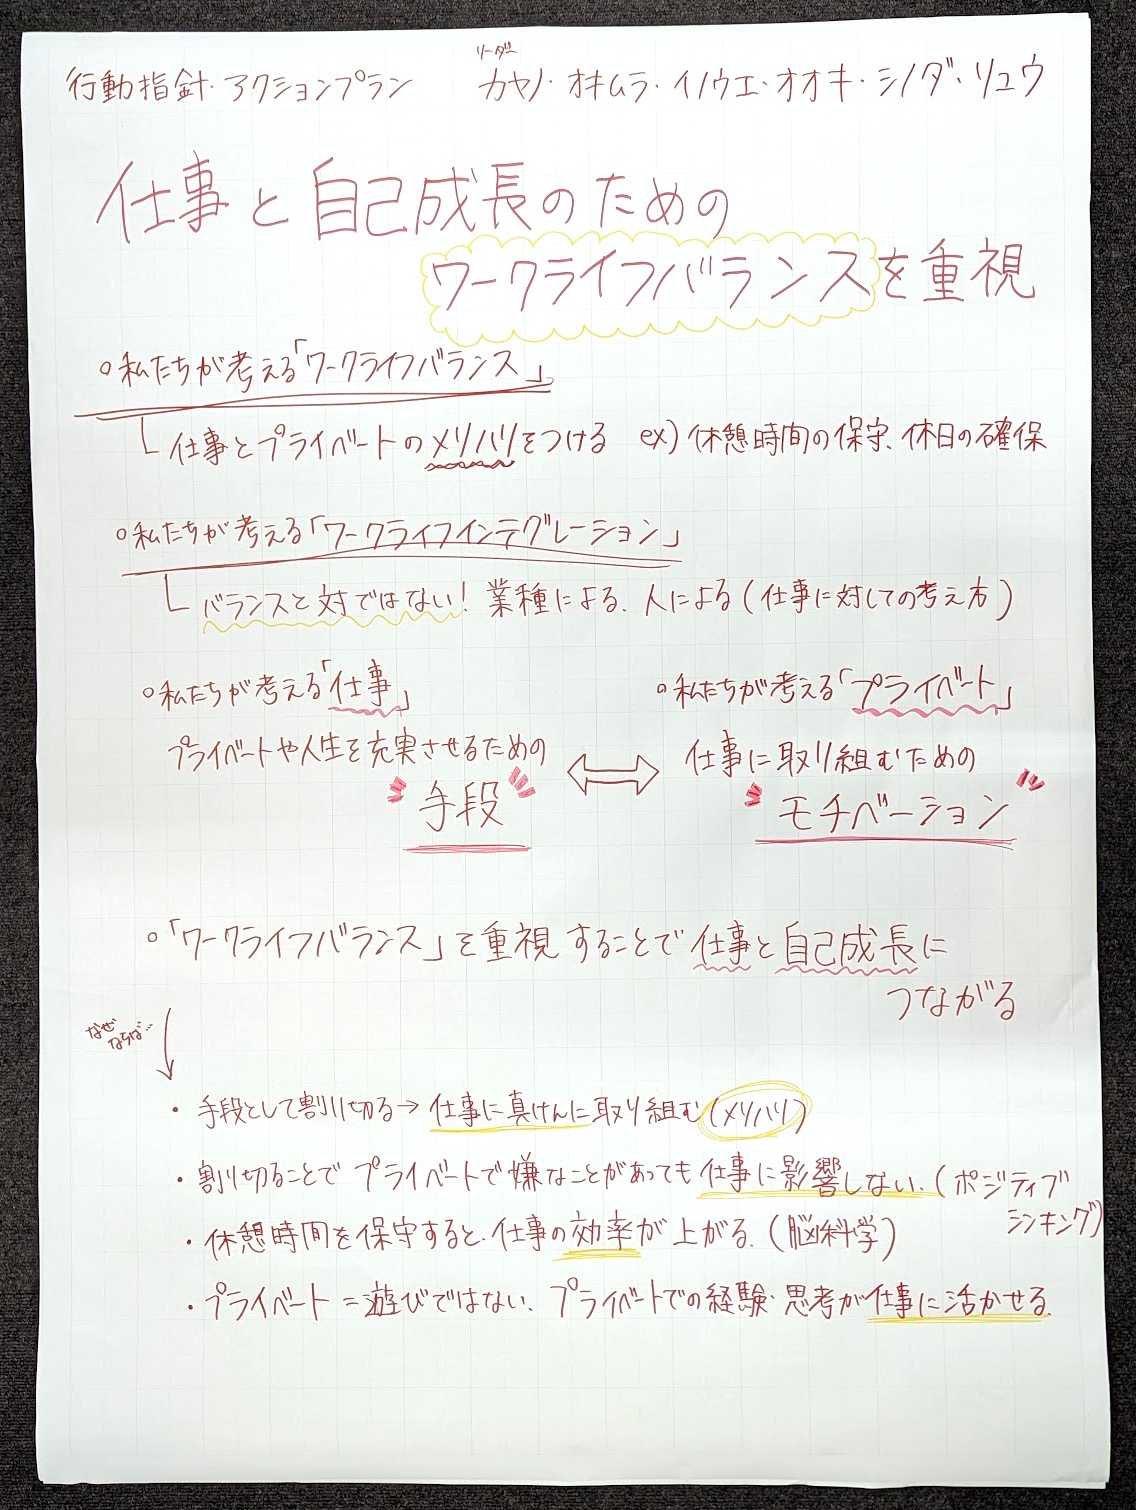 行動指針・アクションプラン
リーダー
カヤノ・オキムラ・イノウエ・オオキ・シノダ・リュウ
仕事と自己成長のための
ワークライフバランスを重視
○私たちが考える「ワークライフバランス」
仕事とプライベートのメリハリをつける ex) 休憩時間の保守、休日の確保
○私たちが考える「ワークライフインテグレーション」
バランスと対ではない! 業種による、人による(仕事に対しての考え方)
○私たちが考える「仕事」
プライベートや人生を充実させるための
手段
○私たちが考える「プライベート」
仕事に取り組むための
モチベーション
○「ワークライフバランス」を重視することで仕事と自己成長に
つながる
なぜ
ならば…
・手段として割り切る→仕事に真けんに取り組む(メリハリ)
・割り切ることでプライベートで嫌なことがあっても仕事に影響しない、(ポジティブ
シンキング)
・休憩時間を保守すると、仕事の効率が上がる。(脳科学)
・プライベート=遊びではない、プライベートでの経験・思考が仕事に活かせる。